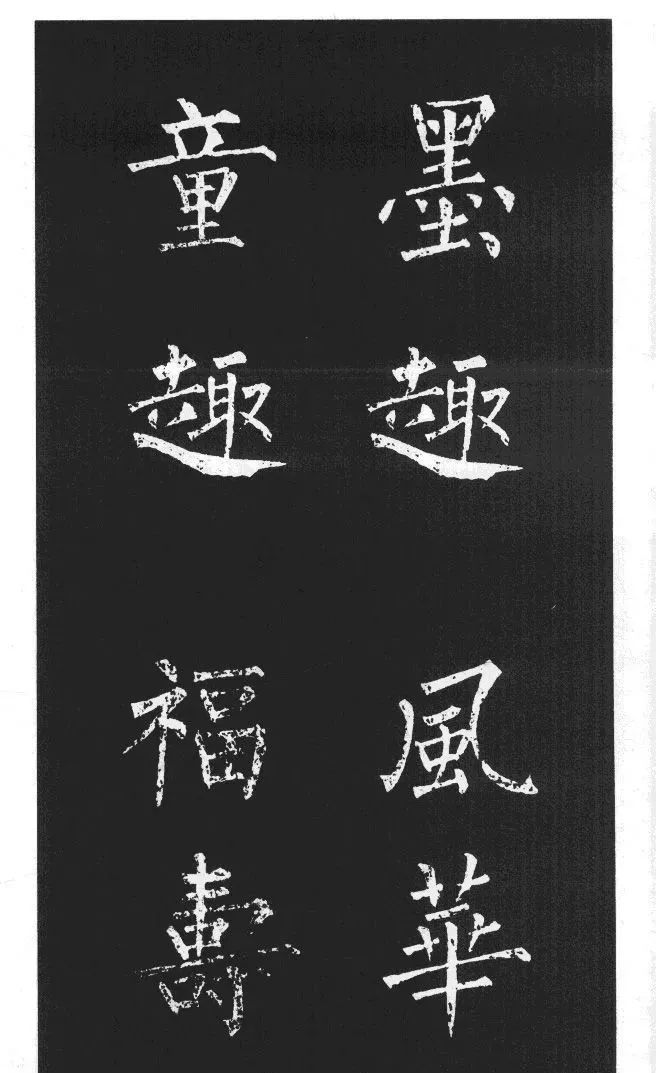 墨趣
童趣
風華
福壽